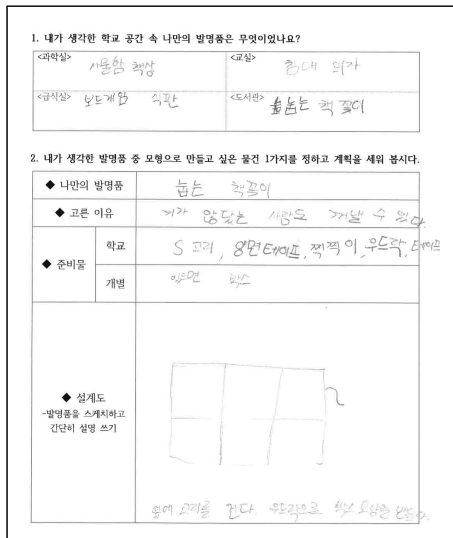 1. 내가 생각한 학교 공간 속 나만의 발명품은 무엇이었나요?
<과학실> 사물함 책상
<교실> 침대 의자
<급식실> 보드게임 식판
<도서관> 눕는 책 꽂이
2. 내가 생각한 발명품 중 모형으로 만들고 싶은 물건 1가지를 정하고 계획을 세워 봅시다.
◆ 나만의 발명품 눕는 책꽂이
◆ 고른 이유 키가 않닿는 사람도 꺼낼 수 있다.
◆ 준비물
학교 S 고리, 양면테이프, 찍찍이, 우드락, 테이프
개별 있으면 박스
◆ 설계도
-발명품을 스케치하고
간단히 설명 쓰기
옆에 고리를 건다. 우드락으로 박스 모양을 만든다.